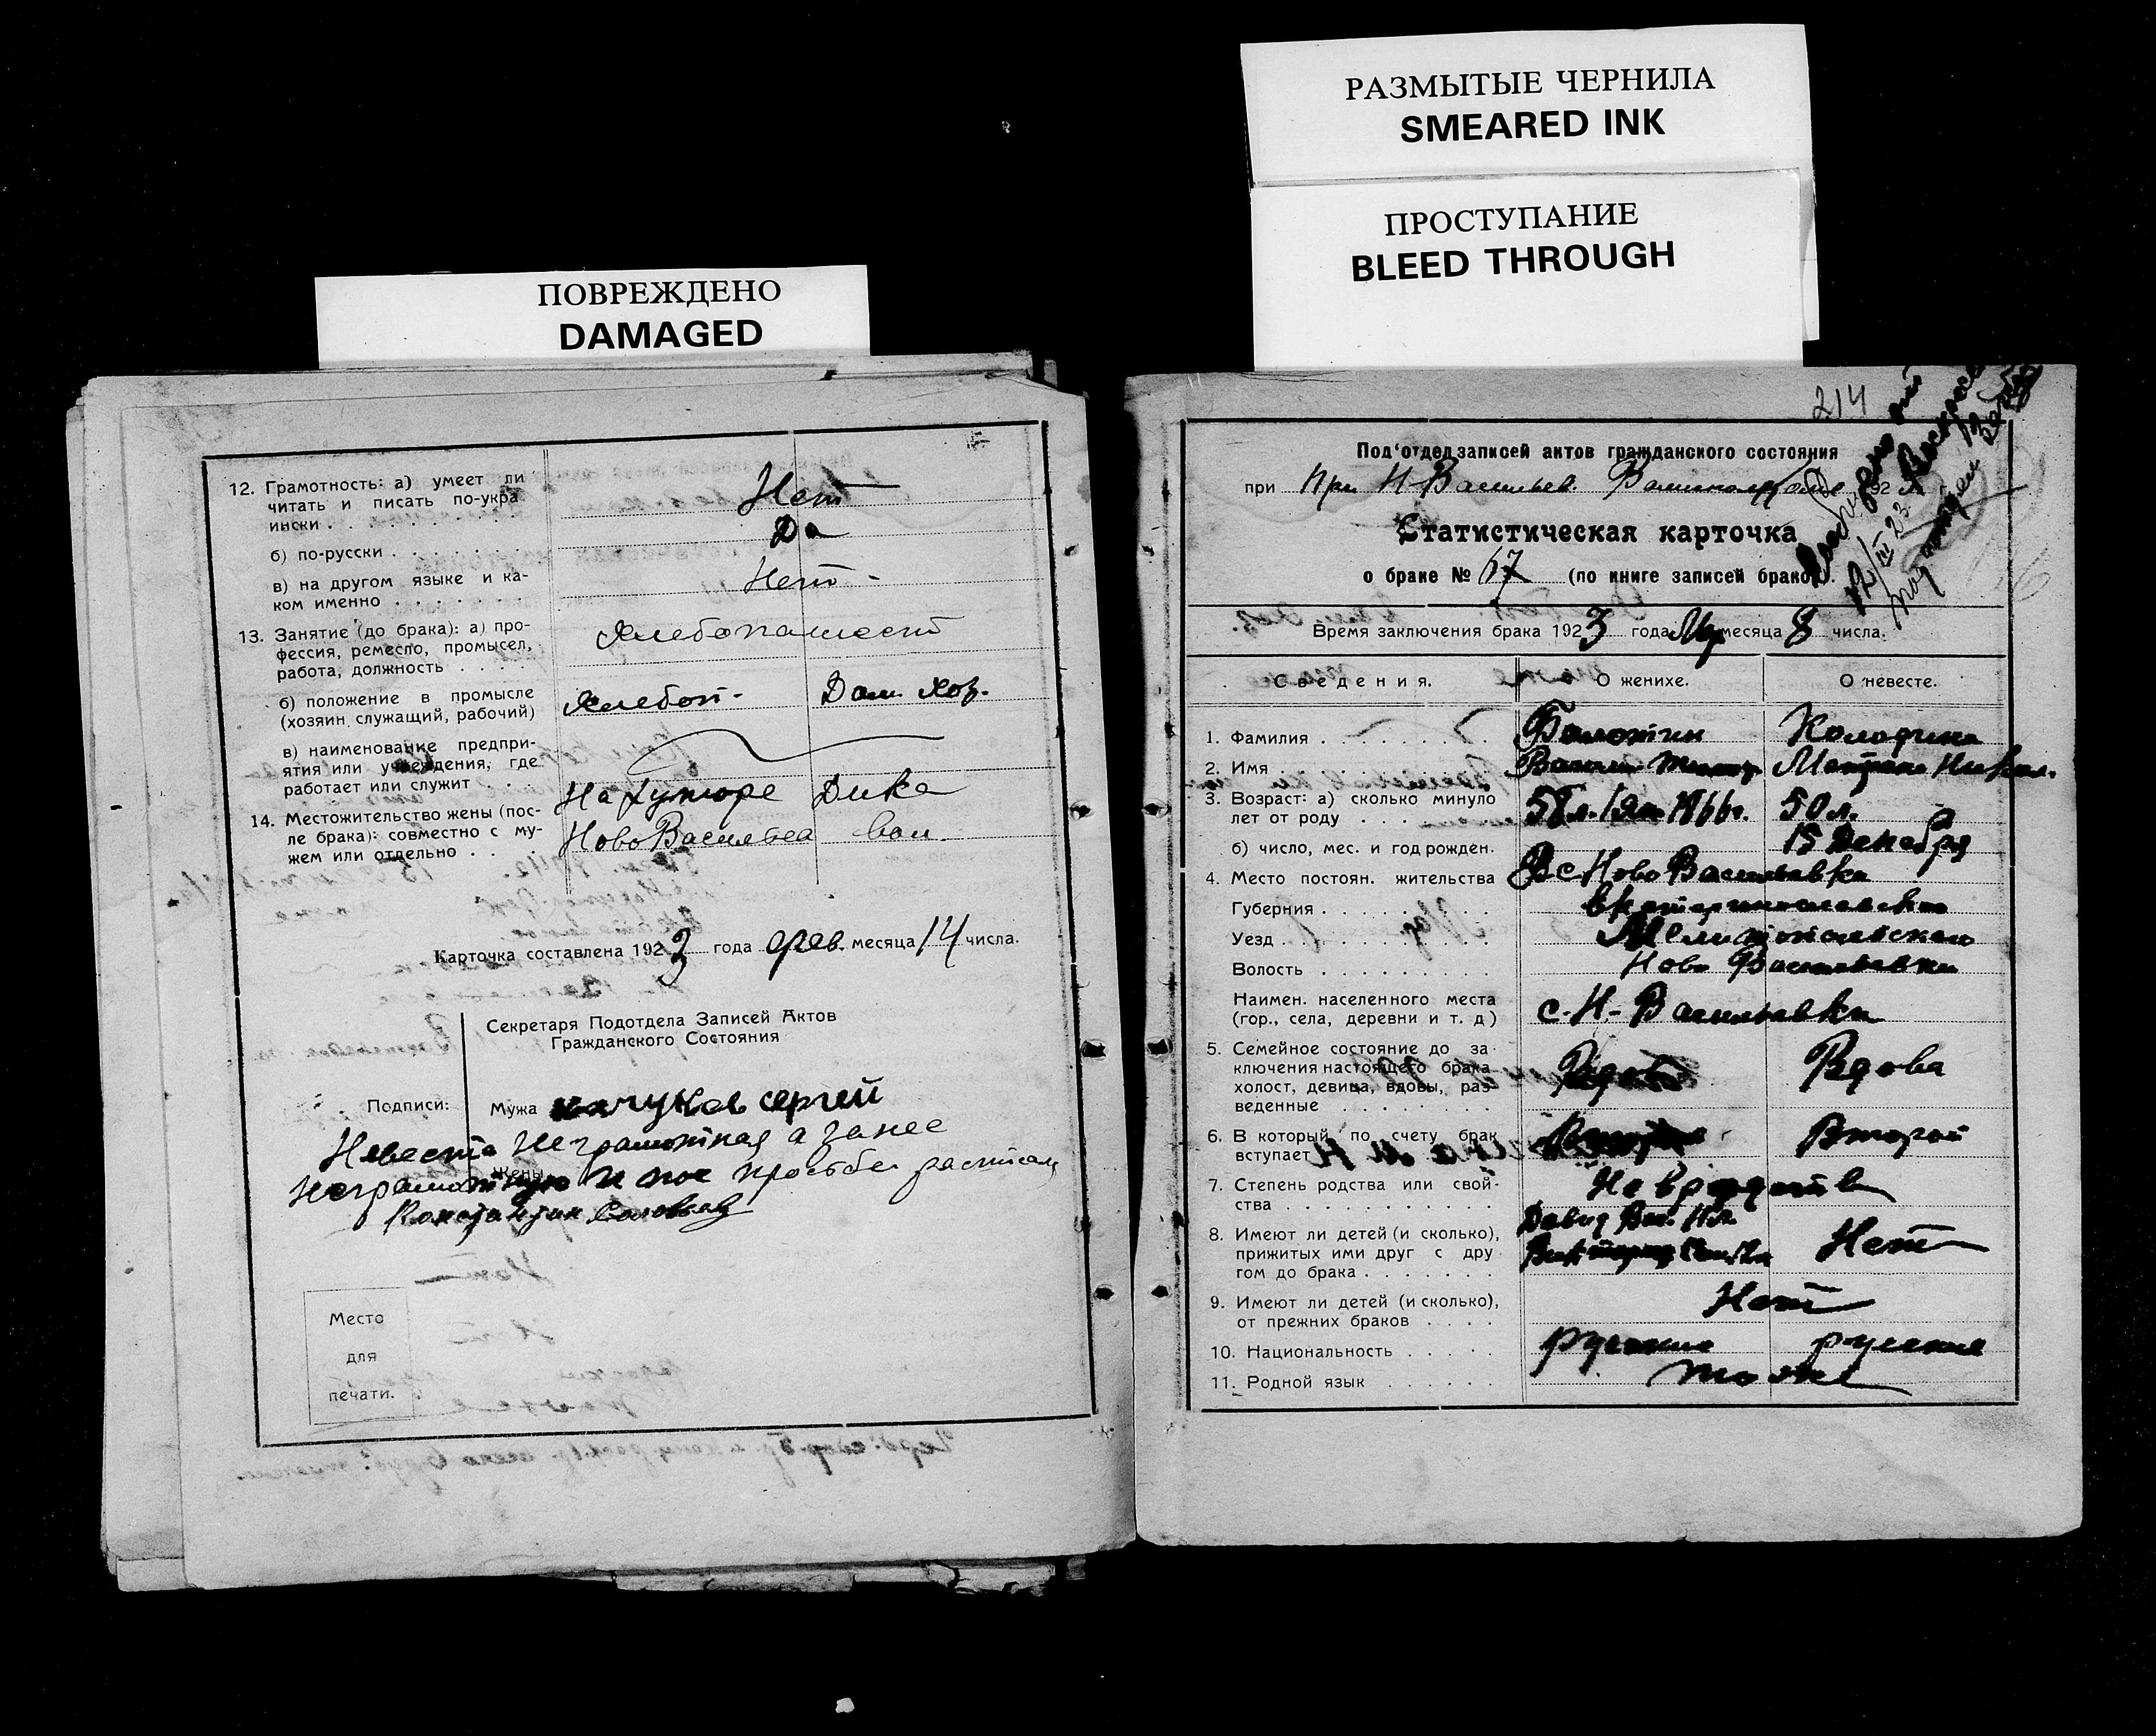 ПОВРЕЖДЕНО
DAMAGED
12. Грамотность: а) умеет ли
читать и писать по-укра
ински . . . Нет
б) по-русски . . . Да
в) на другом языке и ка-
ком именно . . . Нет
13. Занятие (до брака): а) про-
фессия, ремесло, промысел,
работа, должность . . . Хлебопашест
б) положение в промысле
(хозяин, служащий, рабочий) Хлебоп- Дом. хоз.
в) наименование предпри-
ятия или учреждения, где
работает или служит . . .
14. Местожительство жены (пос-
ле брака): совместно с му-
жем или отдельно . . .
На хуторе Дика
Ново Васильева вол.
Карточка составлена 1923 года фев. месяца 14 числа.
Секретаря Подотдела Записей Актов
Гражданского Состояния
Подписи: Мужа сергей
Невеста неграмотная а за нее
Жены
неграмотную и по ее просьбе
Константин Соловьев
Место
для
печати.
РАЗМЫТЫЕ ЧЕРНИЛА
SMEARED INK
ПРОСТУПАНИЕ
BLEED THROUGH
214
Под'отдел записей актов гражданского состояния
при При Н-Васильев. 192
Статистическая карточка
о браке № 67 (по книге записей браков).
Время заключения брака 1923 года Мар месяца 8 числа.
Сведения. О женихе. О невесте.
1. Фамилия . . . Болотин Колодина
2. Имя . . . Василий
3. Возраст: а) сколько минуло
лет от роду . . . 50 л.
б) число, мес. и год рожден. 15 Декабря
4. Место постоян. жительства В с Ново Васильевка
Губерния . . . Екатеринославская
Уезд . . . Мелитопольского
Волость . . . Ново Васильевка
Наимен. населенного места
(гор., села, деревни и т. д.) с. Н- Васильевки
5. Семейное состояние до за-
ключения настоящего брака
холост, девица, вдовы, раз-
веденные . . . Вдова
6. В который по счету брак
вступает Второй
7. Степень родства или свой-
ства . . . Не в родстве
8. Имеют ли детей (и сколько),
прижитых ими друг с дру
гом до брака . . . Нет
9. Имеют ли детей (и сколько),
от прежних браков . . . Нет
10. Национальность . . . русские русские
11. Родной язык . . . тоже